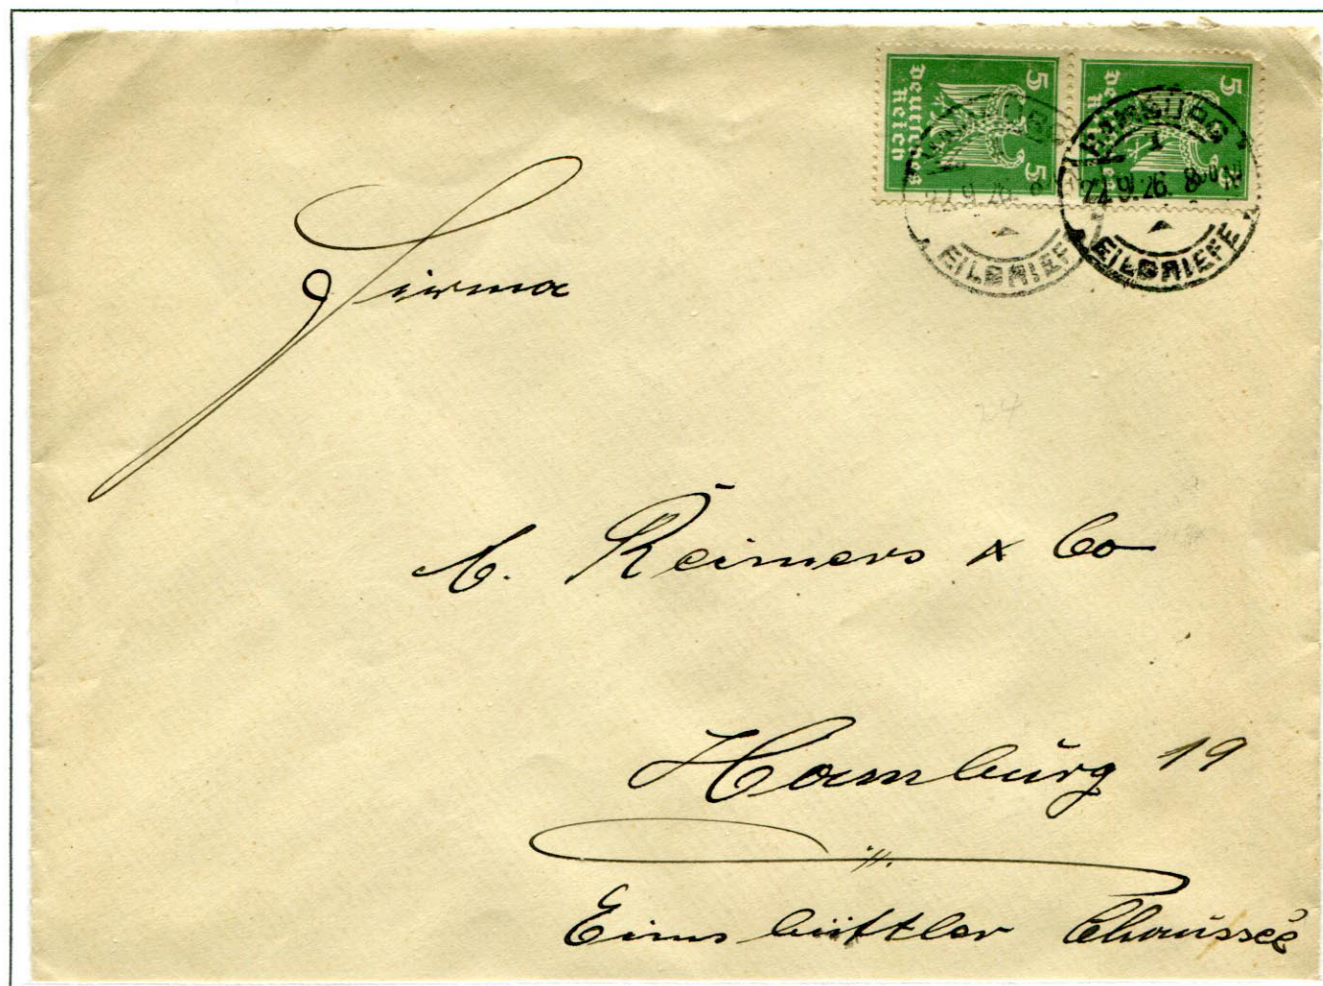 5 5
Deutsches
Reich
5 5
HAMBURG
1
22.9.26. 8
EILBRIEFE
HAMBURG
1
22.9.26. 8
EILBRIEFE
Firma
24
C. Reimers & Co
Hamburg 19
Eimsbüttler Chaussee